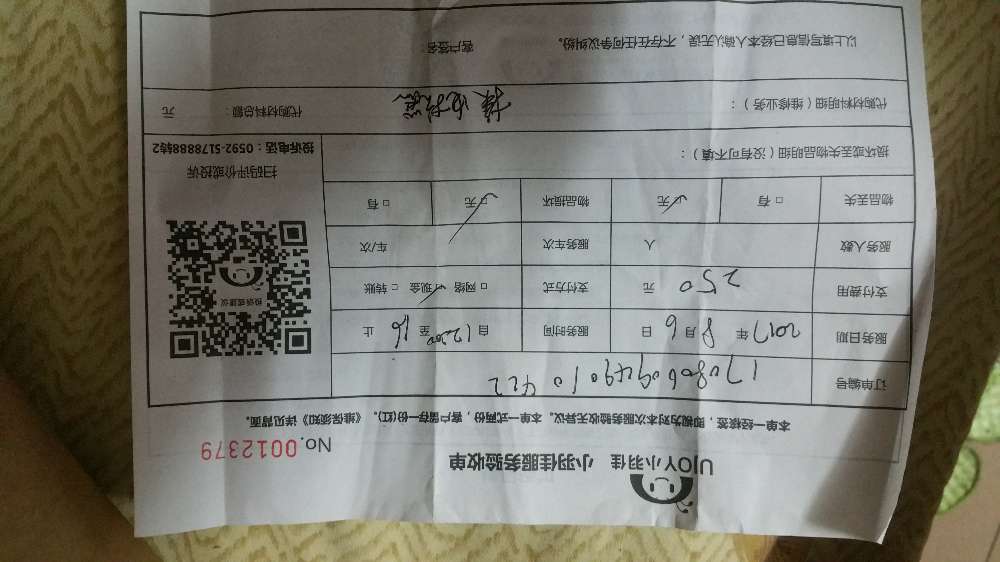 UJOY小羽佳 小羽佳服务验收单
No.0012379
本单一经核签，即视为对本次服务验收无异议。本单一式两份，客户留存一份(红)。《维保须知》详见背面。
订单编号 170806094901 0422
服务日期 2017年8月6日 服务时间 自1200至16止
支付费用 250元 支付方式 □网络 ☑现金 □转账
服务人数 人 服务车次 车/次
物品丢失 □有 ☑无 物品损坏 ☑无 □有
投诉或建议
扫码评价或投诉
投诉电话：0592-5178888转2
损坏或丢失物品明细（没有可不填）：
代购材料明细（维修业务）： 代购材料总额： 元
以上填写信息已经本人确认无误，不存在任何争议纠纷。 客户签名：